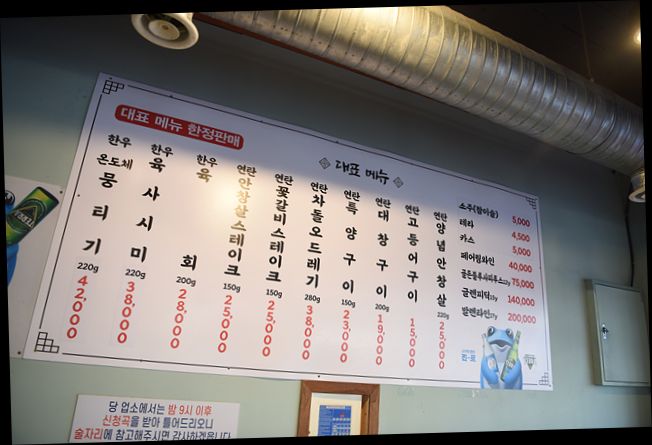 대표 메뉴 한정판매
대표 메뉴
한우
온도체
뭉티기
220g
42,000
한우
육사시미
220g
38,000
한우
육회
200g
28,000
연탄
안창살스테이크
150g
25,000
연탄
꽃갈비스테이크
150g
25,000
연탄
차돌오드레기
280g
38,000
연탄
특양구이
150g
23,000
연탄
대창구이
200g
19,000
연탄
고등어구이
15,000
연탄
양념안창살
220g
25,000
소주(참이슬) 5,000
테라 4,500
카스 5,000
페어링와인 40,000
75,000
글렌피딕15y 140,000
발렌타인17y 200,000
당 업소에서는 밤 9시 이후
신청곡을 받아 틀어드리오니
술자리에 참고해주시면 감사하겠습니다